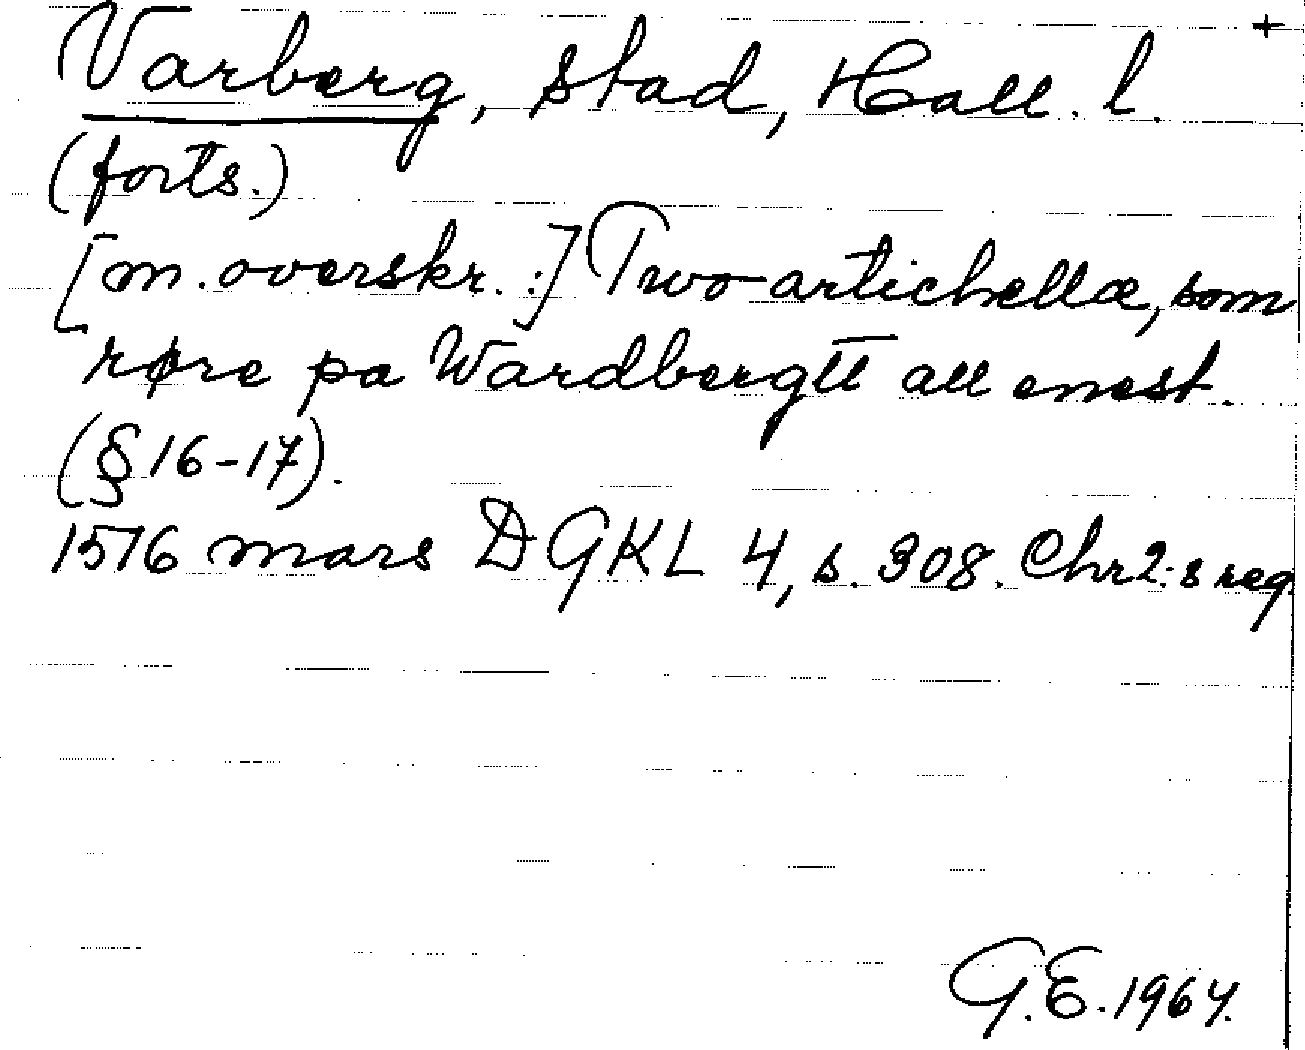 +
Varberg, stad, Hall. l.
(forts.)
[m. overskr.:] Two artichellæ, som
røre pa Wardbergtt all enest.
(§ 16-17).
1516 mars DGKL 4, s. 308. Chr2:s reg.
G.E. 1964.